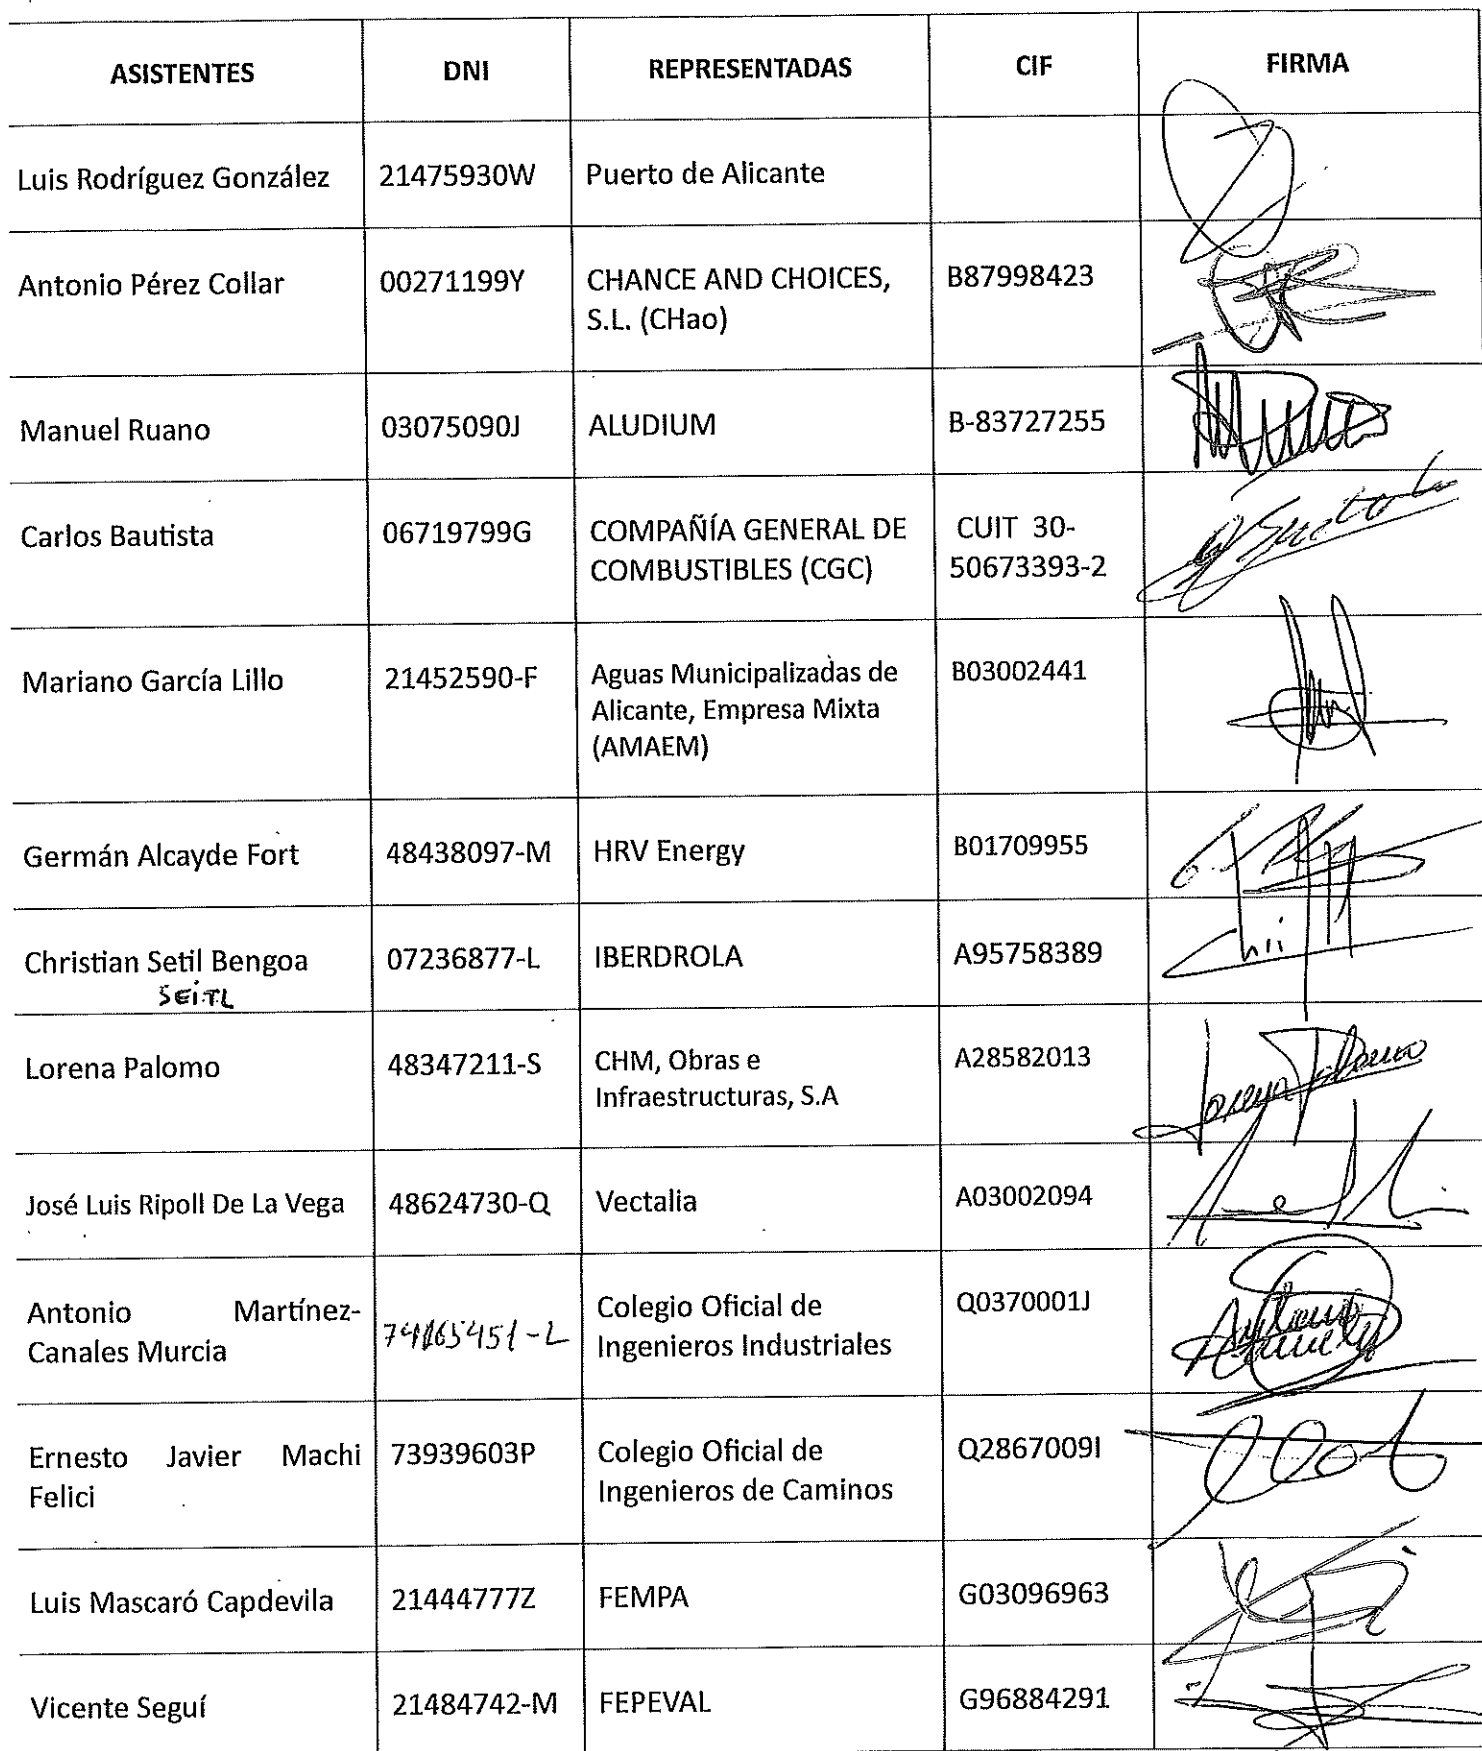 ASISTENTES DNI REPRESENTADAS CIF FIRMA
Luis Rodríguez González 21475930W Puerto de Alicante
Antonio Pérez Collar 00271199Y CHANCE AND CHOICES, B87998423
S.L. (CHao)
Manuel Ruano 03075090J ALUDIUM B-83727255
Carlos Bautista 06719799G COMPAÑÍA GENERAL DE CUIT 30-
COMBUSTIBLES (CGC) 50673393-2
Mariano García Lillo 21452590-F Aguas Municipalizadas de B03002441
Alicante, Empresa Mixta
(AMAEM)
Germán Alcayde Fort 48438097-M HRV Energy B01709955
Christian Setil Bengoa 07236877-L IBERDROLA A95758389
SEITL
Lorena Palomo 48347211-S CHM, Obras e A28582013
Infraestructuras, S.A
Lorena Palomo
José Luis Ripoll De La Vega 48624730-Q Vectalia A03002094
Antonio Martínez- Colegio Oficial de Q0370001J
Canales Murcia Ingenieros Industriales
Ernesto Javier Machi 73939603P Colegio Oficial de Q2867009I
Felici Ingenieros de Caminos
Luis Mascaró Capdevila 21444777Z FEMPA G03096963
Vicente Seguí 21484742-M FEPEVAL G96884291